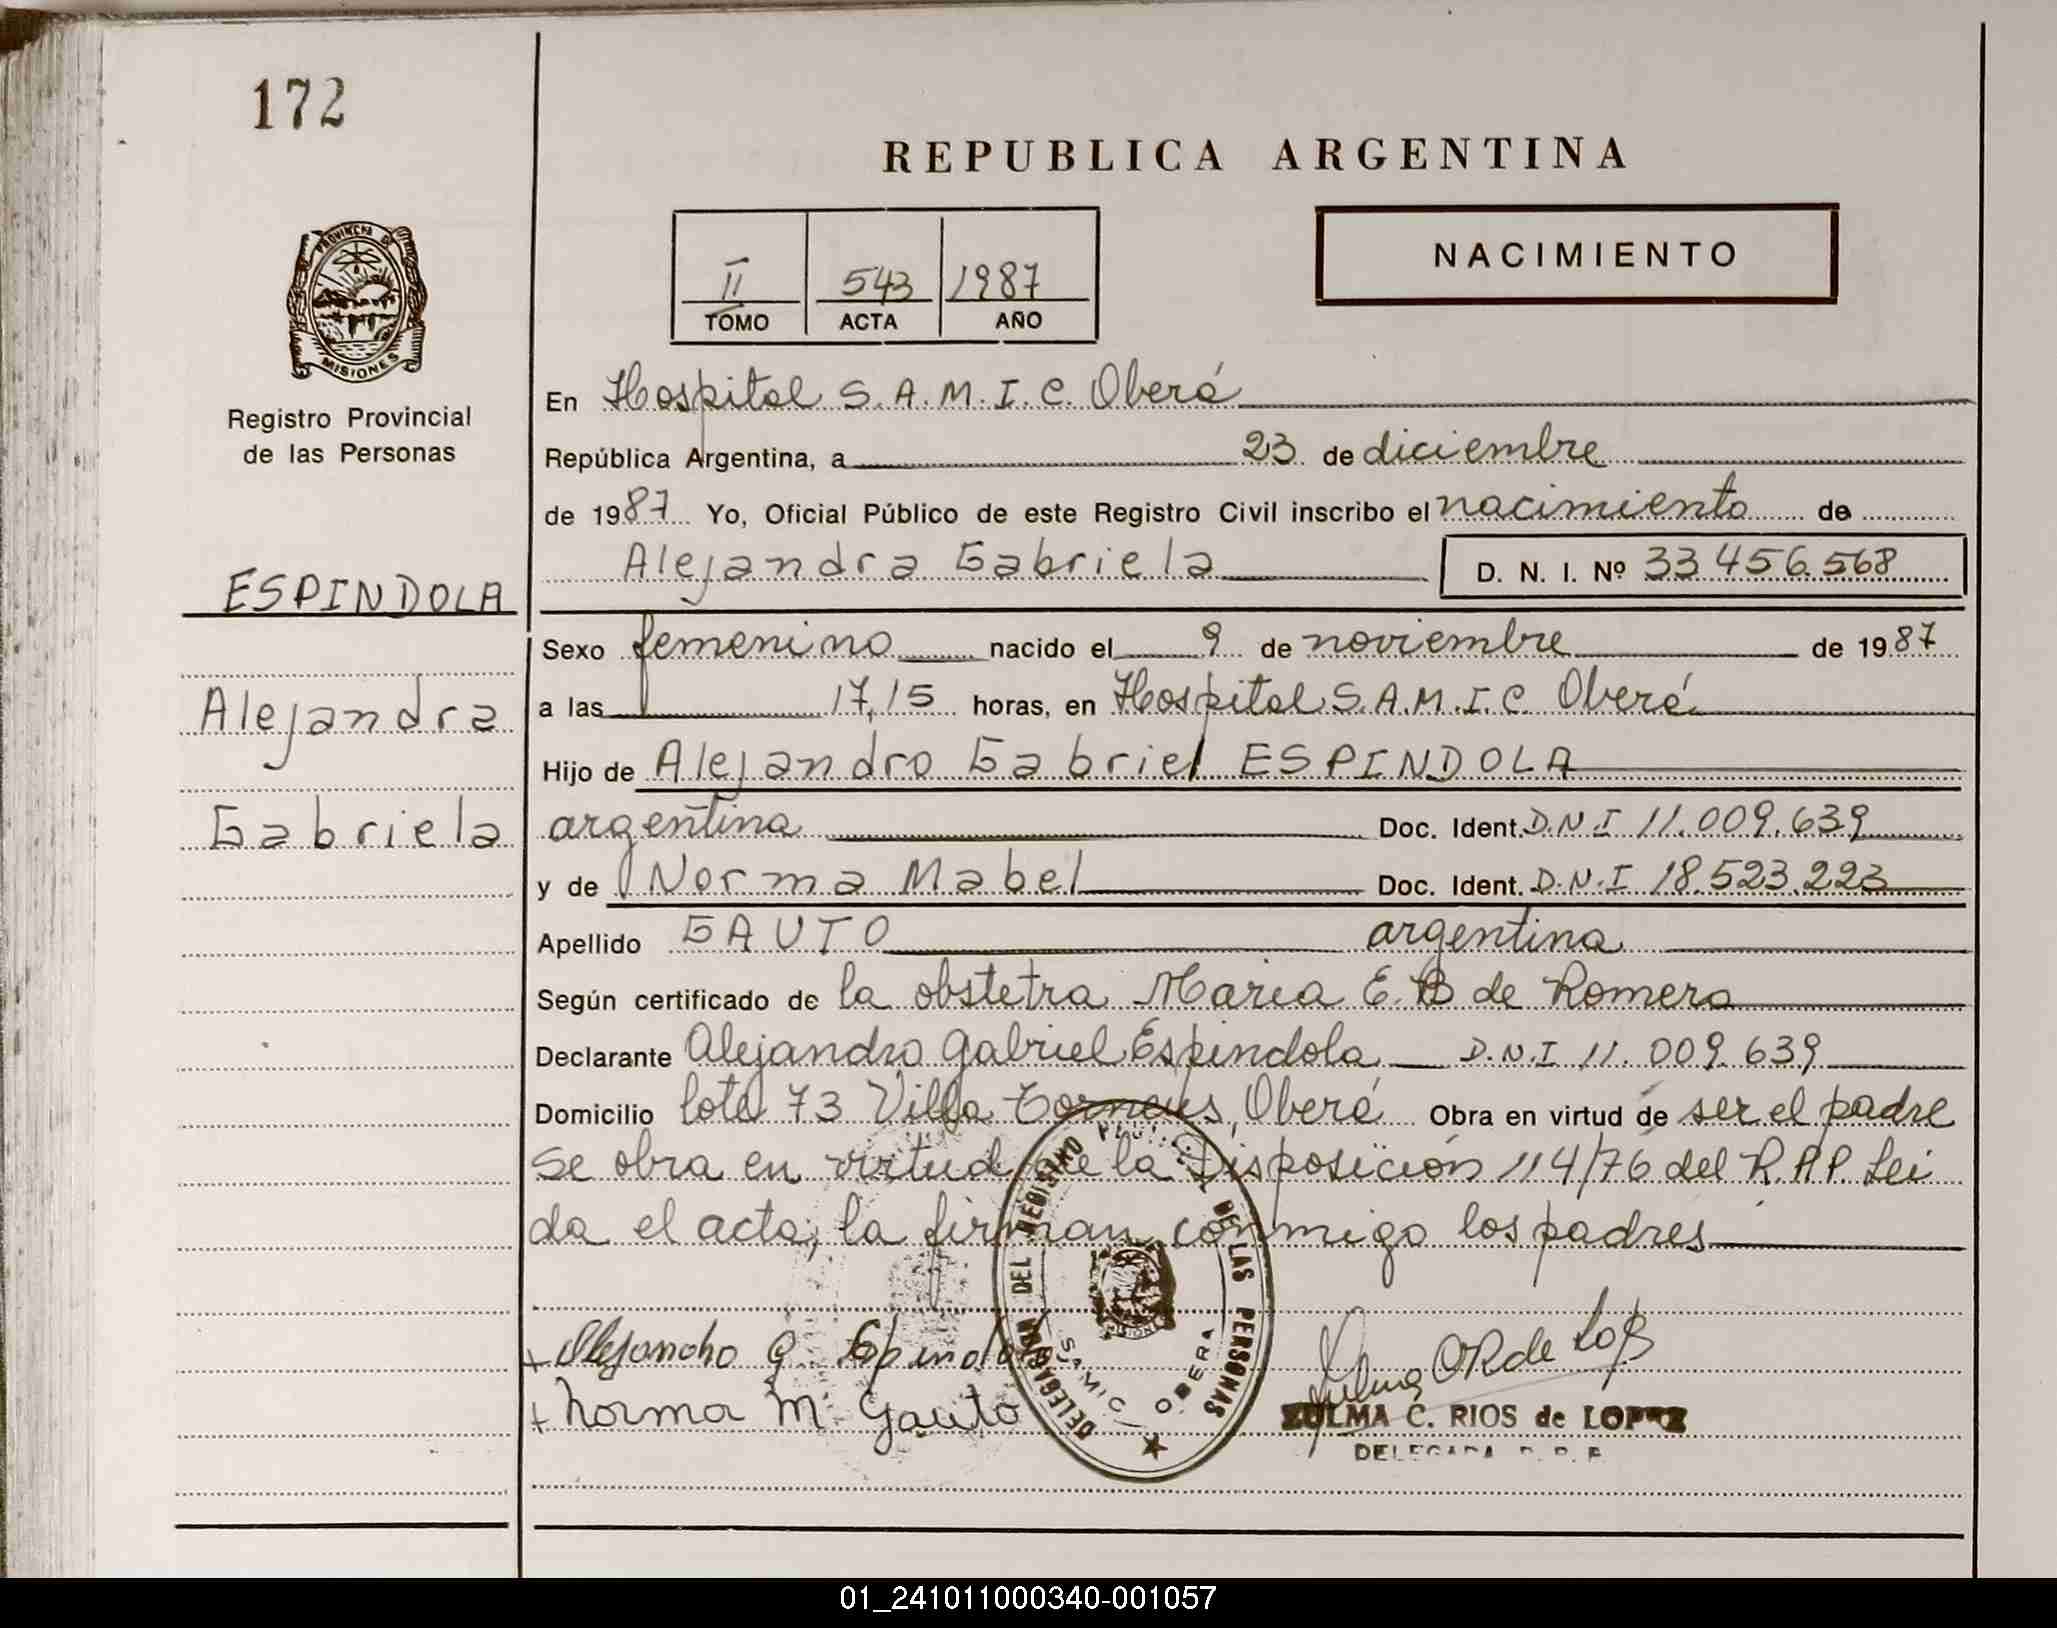 172
REPUBLICA ARGENTINA
II 543 1987
TOMO ACTA AÑO
NACIMIENTO
PROVINCIA DE
MISIONES
Registro Provincial
de las Personas
En Hospital S.A.M.I.C. Oberá
República Argentina, a 23 de diciembre
de 1987 Yo, Oficial Público de este Registro Civil inscribo el nacimiento de
Alejandra Gabriela D. N. I. Nº 33.456.568
ESPINDOLA
Alejandra
Gabriela
Sexo femenino nacido el 9 de noviembre de 1987
a las 17,15 horas, en Hospital S.A.M.I.C. Oberá
Hijo de Alejandro Gabriel ESPINDOLA
argentina Doc. Ident. D.N.I 11.009.639
y de Norma Mabel Doc. Ident. D.N.I 18.523.223
Apellido GAUTO argentina
Según certificado de la obstetra Maria E. B de Romero
Declarante Alejandro Gabriel Espindola D.N.I 11.009.639
Domicilio lote 73 Villa Oberá Obra en virtud de ser el padre
Se obra en virtud de la Disposición 114/76 del R.P.P. Lei
da el acta, la firman conmigo los padres
Alejandro G. Espindola
Norma M. Gauto
DELEGADA DEL REGISTRO DE LAS PERSONAS
SAMIC OBERA
MISIONES
ZULMA C. RIOS de LOPEZ
DELEGADA R. P. P.
01_241011000340-001057